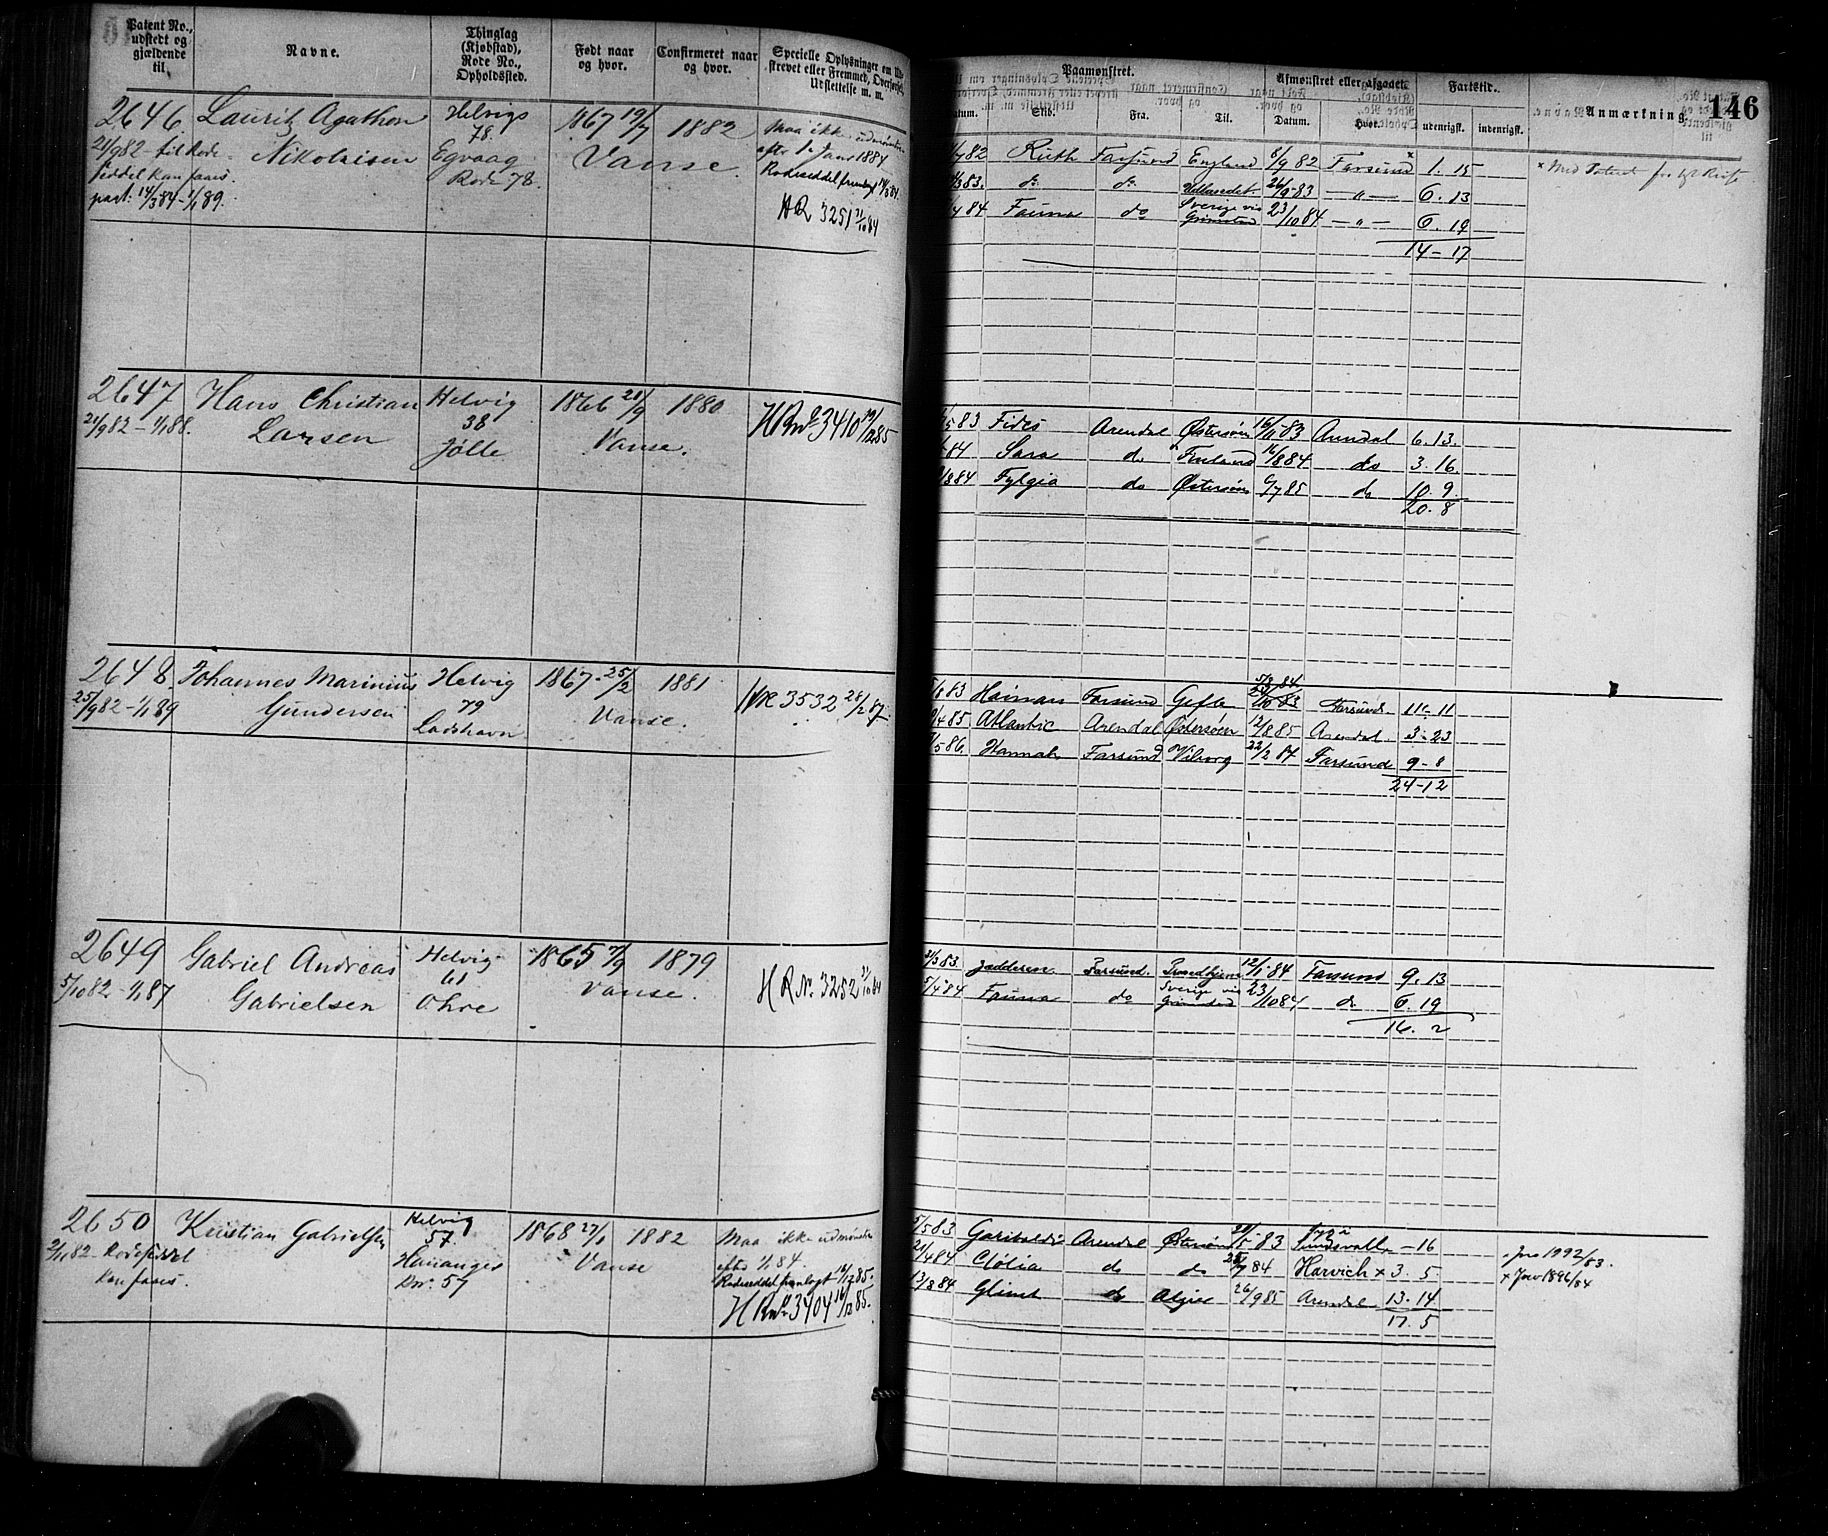 Patent No., udstedt og gjældende til.
Navne.
Thinglag (Kjøbstad), Rode No., Opholdssted.
Født naar og hvor.
Confirmeret naar og hvor.
Specielle Oplysninger om
strevet eller Fremmed, Overførsel,
Udslettelse m. m.
Paamønstret.
Afmønstret eller afgaaet.
Fartstid.
146
Datum.
Skib.
Fra.
Til.
Datum.
Hvor.
udenrigst.
indenrigst.
Anmærkning.
2646. Lauritz Agathon Helvigs 1867 19/7 1882 Maa ikke udmønstres
78.
21/9 82 - til Rode- Nikolaisen Egvaag Vanse. efter 1. Janr 1884
seddel kan faaes. Rode 78. Rodeseddel fremlagt
pat. 14/3 84 - 1/1 89. HR 3251 31/10 84
/7 82 Ruth Farsund England 8/9 82 Farsund x 1. 15 x Med Patent
/3 83. do do 26/9 83 - " - 6. 13
/4 84 Fauna do Sverige via Grimstad 23/10 84 - " - 6. 19
14 - 17
2647 Hans Christian Helvig 1866 21/9 1880 HR No 3410 19/12 85
21/9 82 - 1/1 88. Larsen 38 Vanse.
Jølle
/5 83 Fides Arendal Østersøen 16/11 83 Arendal 6. 13.
84 Sara do Finland 16/8 84 do 3. 16.
/8 84 Fylgia do Østersøen 6/7 85 do 10. 9.
20. 8
2648. Johannes Marinius Helvig 1867 - 25/2 1881 HR 3532 28/2 87.
25/9 82 - 1/1 89 Gundersen 79 Vanse.
Ladshavn
/8 83 Hainan Farsund Gefle 5/8 84 Farsund. 11 - 11
/4 85 Atlantic Arendal Østersøen 12/8 85 Arendal. 3 - 23
/5 86. Hannah Farsund Viborg 22/2 87 Farsund 9 - 8
24 - 12
2649 Gabriel Andreas Helvig 1865 7/9 1879 HR No. 3252 31/10 84
5/10 82 - 1/1 87 Gabrielsen 61 Vanse.
Ohre
/3 83. Jædderen Farsund. Trondhjem 12/1 84 Farsund 9. 13
5/4 84 Fauna do Sverige via Grimstad 23/10 84 do 6. 19
16. 2
2650 Kristian Gabrielsen Helvig 1868 27/1 1882 Maa ikke udmønstres
57.
2/11 82 - Rodeseddel Hananger Vanse efter 1/1 84.
kan faaes. Rno. 57 Rodeseddel fremlagt 16/12 85.
HR No 3404 16/12 85.
5/5 83 Garibaldi Arendal Østersøen 83 Sundsvall - 16 Jno 1992/83.
21/4 84 Clølia do do 84 Harvich x 3. 5. x Jno 1896/84
13/8 84 Glimt do Algier 26/9 85 Arendal 13. 14
17. 5